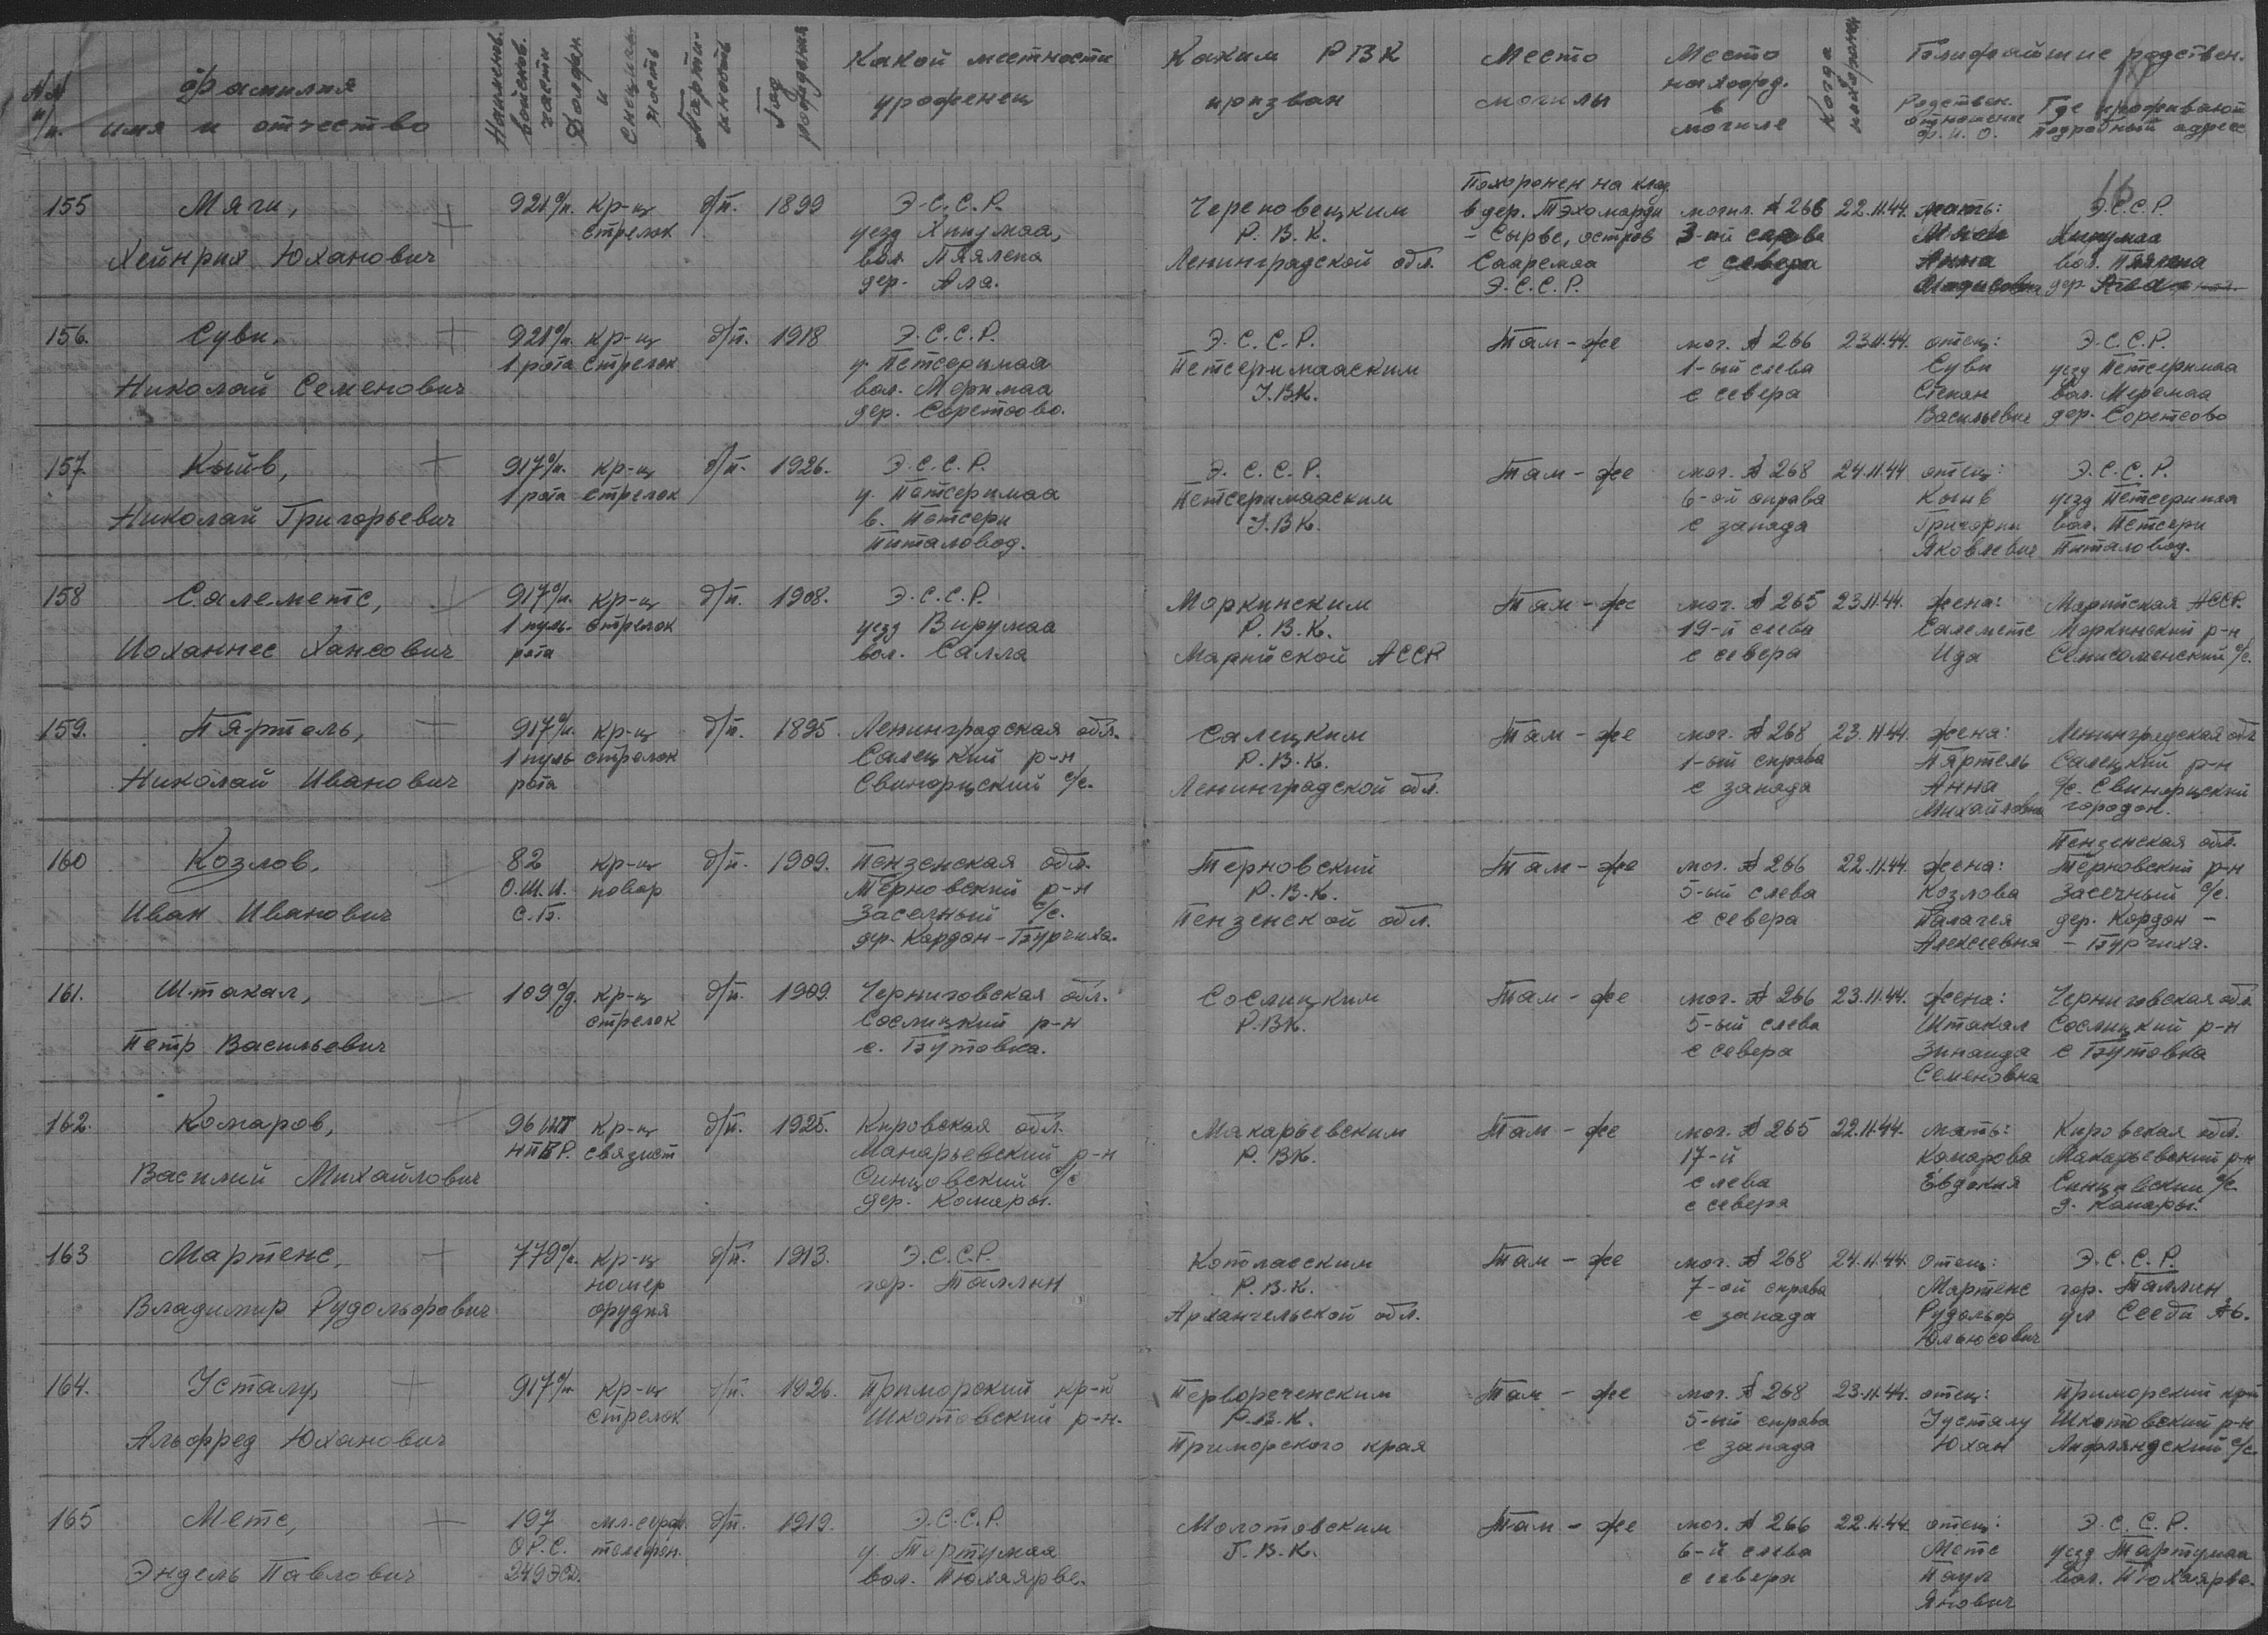 №№ п/п.
Фамилия имя и отчество
Наименов. войсков. части
Должн. и специаль-ность
Парти-йность
Год рождения
Какой местности уроженец
Каким РВК призван
Место могилы
Место нахожд. в могиле
Когда похоронен
Ближайшие родствен.
Родствен. отношение Ф.И.О.
Где проживают подробный адрес
16
155 Мяги, 921 с/п. кр-ц б/п. 1899 Э.С.С.Р. Череповецким Похоронен на клад. могил. № 266 22.11.44. мать: Э.С.С.Р.
Хейнрих Юханович стрелок уезд Хиицмаа, Р.В.К. в дер. Тэхомарди 3-ий справа Мяги Хиицмаа
вол. Пяялепа Ленинградской обл. - Сырве, остров с севера Анна вол. Пяялепа
дер. Ала. Сааремаа Э.С.С.Р. дер. Ала
156. Суви, 921 с/п. кр-ц б/п. 1918 Э.С.С.Р. Э.С.С.Р. Там-же мог. № 266 23.11.44. отец: Э.С.С.Р.
1 рота стрелок у. Петсеримаа Петсеримааским 1-ый слева Суви уезд Петсеримаа
Николай Семенович вол. Меримаа У.В.К. с севера Степан вол. Меремаа
дер. Соретсово. Васильевич дер. Соретсово
157. Кыйв, 917 с/п. кр-ц б/п. 1926. Э.С.С.Р. Э.С.С.Р. Там-же мог. № 268 24.11.44 отец: Э.С.С.Р.
1 рота стрелок у. Петсеримаа Петсеримааским 6-ой справа Кыйв уезд Петсеримаа
Николай Григорьевич в. Петсери У.В.К. с запада Григорий вол. Петсери
Питаловод. Яковлевич Питаловод.
158 Салеметс, 917 с/п. кр-ц б/п. 1908. Э.С.С.Р. Моркинским Там-же мог. № 265 23.11.44. жена: Марийская АССР.
1 пуль. стрелок уезд Вирумаа Р.В.К. 19-й слева Салеметс Моркинский р-н
Иоханнес Хансович рота вол. Салла Марийской АССР с севера Ида Семисоленский с/с.
159. Пяртель, 917 с/п. кр-ц б/п. 1895. Ленинградская обл. Салецким Там-же мог. № 268 23.11.44. жена: Ленинградская обл
1 пуль стрелок Салецкий р-н Р.В.К. 1-ый справа Пяртель Салецкий р-н
Николай Иванович рота Свинорцский с/с. Ленинградской обл. с запада Анна с/с. Свинорцский
Михайловна городок.
160 Козлов, 82 кр-ц б/п. 1909. Пензенская обл. Терновский Там-же мог. № 266 22.11.44. жена: Пензенская обл.
О.Ш.И. повар Терновский р-н Р.В.К. 5-ый слева Козлова Терновский р-н
Иван Иванович с.б. Засечный с/с. Пензенской обл. с севера Палагея Засечный с/с.
дер. Кордон-Бурчиха. Алексеевна дер. Кордон - - Бурчиха.
161. Штакал, 109 с/д. кр-ц б/п. 1909. Черниговская обл. Сослицким Там-же мог. № 266 23.11.44. жена: Черниговская обл
стрелок Сослицкий р-н Р.ВК. 5-ый слева Штакал Сослицкий р-н
Петр Васильевич с. Бутовка. с севера Зинаида с Бутовка
Семеновна
162. Комаров, 96 кр-ц б/п. 1925. Кировская обл. Макарьевским Там-же мог. № 265 22.11.44. мать: Кировская обл.
связист Макарьевский р-н Р.ВК. 17-й Комарова Макарьевский р-н
Василий Михайлович Синцовский с/с слева Евдокия Синцовский с/с
дер. Комары. с севера д. Комары.
163 Мартенс, 779 с/п. кр-ц б/п. 1913. Э.С.С.Р. Котласским Там-же мог. № 268 24.11.44. отец: Э.С.С.Р.
номер гор. Таллин Р.В.К. 7-ой справа Мартенс гор. Таллин
Владимир Рудольфович орудия Архангельской обл. с запада Рудольф ул Сееби №6.
Юльюсович
164. Усталу, 917 с/п. кр-ц б/п. 1926. Приморский кр-й Первореченским Там-же мог. № 268 23.11.44. отец: Приморский край
стрелок Шкотовский р-н. Р.В.К. 5-ый справа Уусталу Шкотовский р-н
Альфред Юханович Приморского края с запада Юхан Лифляндский с/с.
165 Метс, 197 мл. серж. б/п. 1919. Э.С.С.Р. Молотовским Там-же мог. № 266 22.11.44 отец: Э.С.С.Р.
О.Р.С. телефон. у. Тартумаа Г.В.К. 6-й слева Метс уезд Тартумаа
Эндель Павлович 249 Эсд. вол. Пюхаярве. с севера Паул вол. Пюхаярве.
Янович